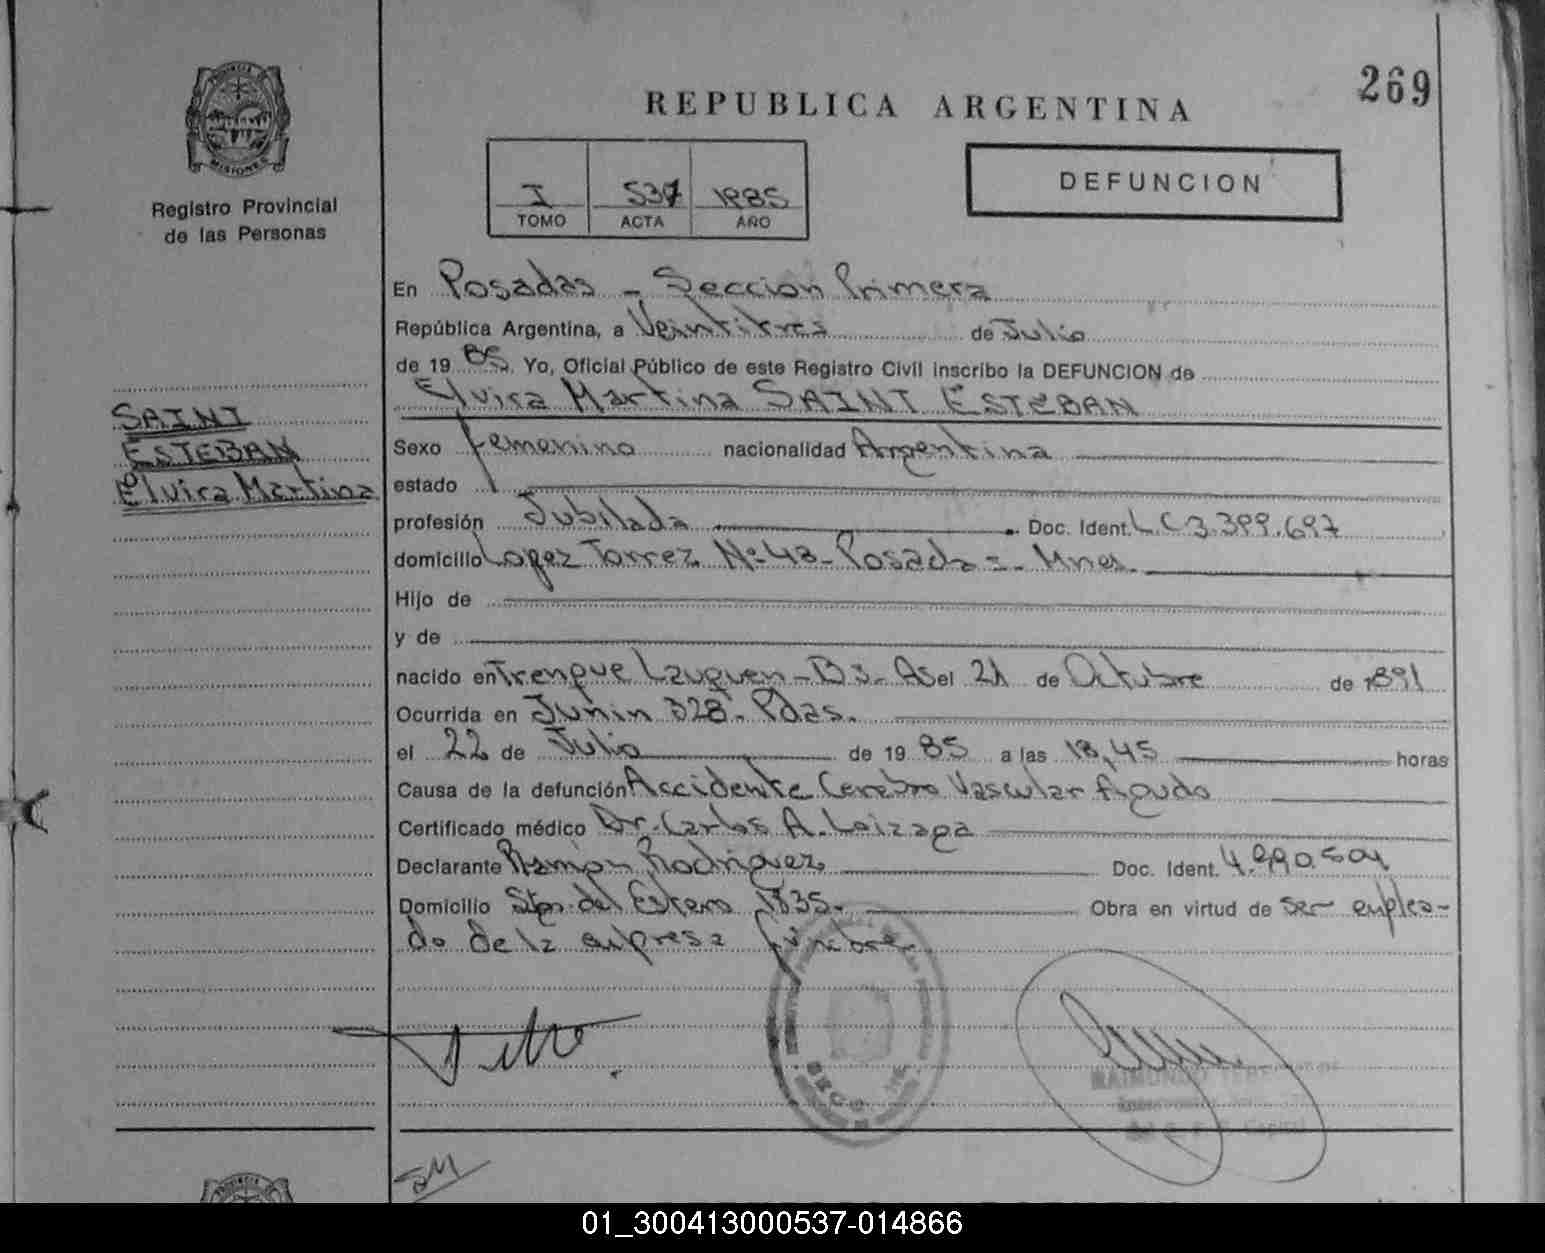 269
REPUBLICA ARGENTINA
PROVINCIA DE
MISIONES
Registro Provincial
de las Personas
I 537 1985
TOMO ACTA AÑO
DEFUNCION
En Posadas - Seccion Primera
República Argentina, a Veintitres de Julio
de 19 85. Yo, Oficial Público de este Registro Civil inscribo la DEFUNCION de
Elvira Martina SAINT ESTEBAN
SAINT
ESTEBAN
Elvira Martina
Sexo femenino nacionalidad Argentina
estado
profesión Jubilada Doc. Ident. L.C 3.399.697
domicilio Lopez Torrez Nº 48 - Posadas - Mnes.
Hijo de
y de
nacido en Trenque Lauquen - Bs. As el 21 de Octubre de 1891
Ocurrida en Junin 328. Pdas.
el 22 de Julio de 19 85 a las 18,45 horas
Causa de la defunción Accidente Cerebro Vascular Agudo
Certificado médico Dr. Carlos A. Loizaga
Declarante Ramon Rodriguez Doc. Ident.
Domicilio Stgo. del Estero 1835. Obra en virtud de ser emplea-
do de la empresa fúnebre
RAIMUNDO
SM
01_300413000537-014866